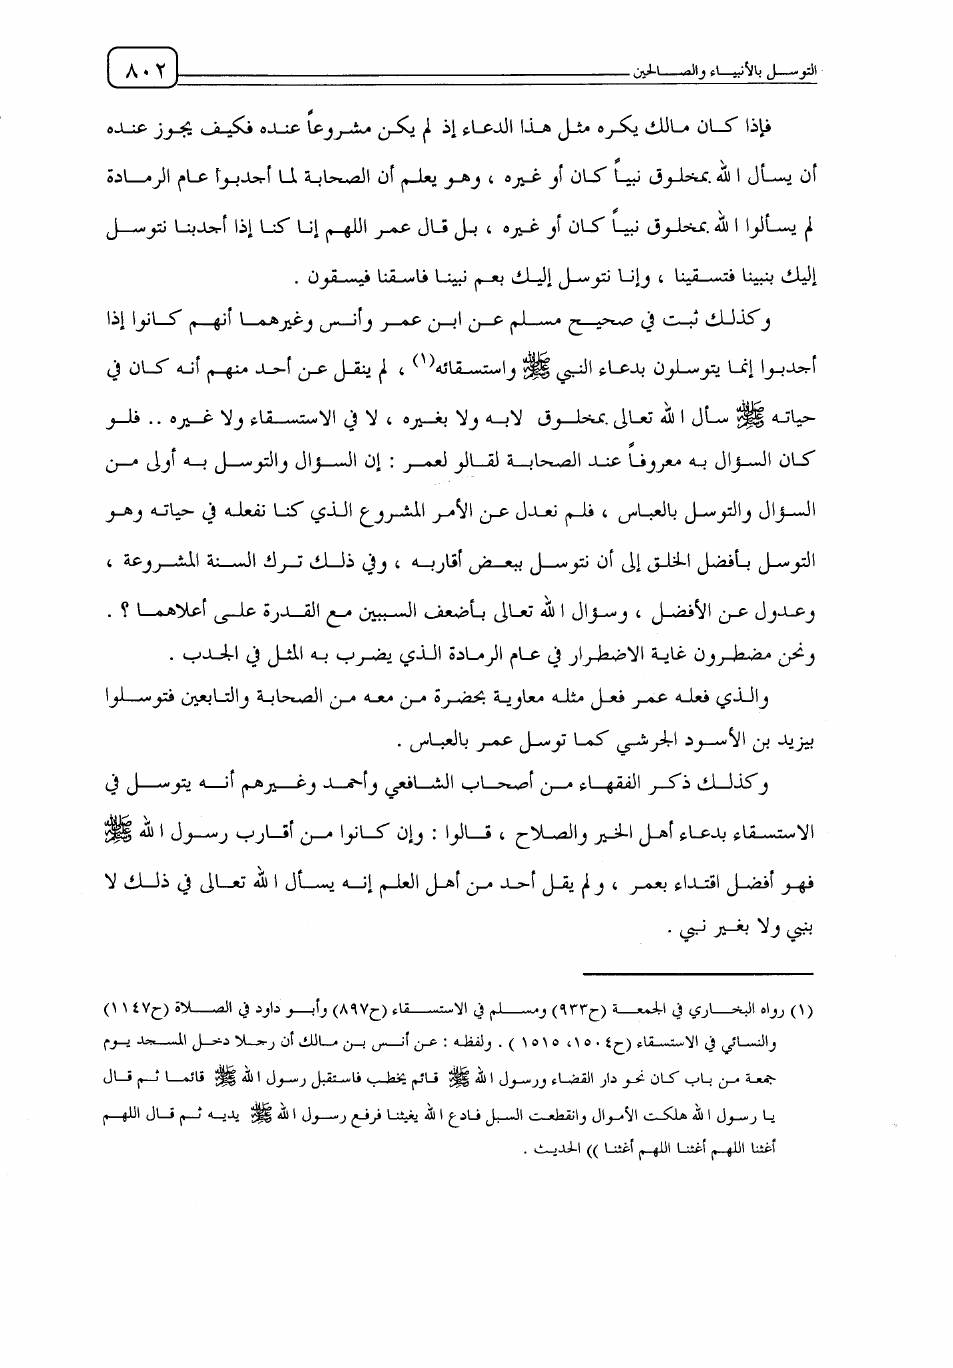 التوسل بالأنبياء والصالحين ٨٠٢
فإذا كان مالك يكره مثل هذا الدعاء إذ لم يكن مشروعاً عنده فكيف يجوز عنده
أن يسأل الله بمخلوق نبياً كان أو غيره ، وهو يعلم أن الصحابة لما أجدبوا عام الرمادة
لم يسألوا الله بمخلوق نبياً كان أو غيره ، بل قال عمر اللهم إنا كنا إذا أجدبنا نتوسل
إليك بنبينا فتسقينا ، وإنا نتوسل إليك بعم نبينا فاسقنا فيسقون .
وكذلك ثبت في صحيح مسلم عن ابن عمر وأنس وغيرهما أنهم كانوا إذا
أجدبوا إنما يتوسلون بدعاء النبي ﷺ واستسقائه(١) ، لم ينقل عن أحد منهم أنه كان في
حياته ﷺ سأل الله تعالى بمخلوق لابه ولا بغيره ، لا في الاستسقاء ولا غيره .. فلو
كان السؤال به معروفاً عند الصحابة لقالو لعمر : إن السؤال والتوسل به أولى من
السؤال والتوسل بالعباس ، فلم نعدل عن الأمر المشروع الذي كنا نفعله في حياته وهو
التوسل بأفضل الخلق إلى أن نتوسل ببعض أقاربه ، وفي ذلك ترك السنة المشروعة ،
وعدول عن الأفضل ، وسؤال الله تعالى بأضعف السببين مع القدرة على أعلاهما ؟ .
ونحن مضطرون غاية الاضطرار في عام الرمادة الذي يضرب به المثل في الجدب .
والذي فعله عمر فعل مثله معاوية بحضرة من معه من الصحابة والتابعين فتوسلوا
بيزيد بن الأسود الجرشي كما توسل عمر بالعباس .
وكذلك ذكر الفقهاء من أصحاب الشافعي وأحمد وغيرهم أنه يتوسل في
الاستسقاء بدعاء أهل الخير والصلاح ، قالوا : وإن كانوا من أقارب رسول الله ﷺ
فهو أفضل اقتداء بعمر ، ولم يقل أحد من أهل العلم إنه يسأل الله تعالى في ذلك لا
بنبي ولا بغير نبي .
(١) رواه البخاري في الجمعة (ح٩٣٣) ومسلم في الاستسقاء (ح٨٩٧) وأبو داود في الصلاة (ح١١٤٧)
والنسائي في الاستسقاء (ح١٥٠٤، ١٥١٥ ) . ولفظه : عن أنس بن مالك أن رجلا دخل المسجد يوم
جمعة من باب كان نحو دار القضاء ورسول الله ﷺ قائم يخطب فاستقبل رسول الله ﷺ قائما ثم قال
يا رسول الله هلكت الأموال وانقطعت السبل فادع الله يغيثنا فرفع رسول الله ﷺ يديه ثم قال اللهم
أغثنا اللهم أغثنا اللهم أغثنا )) الحديث .